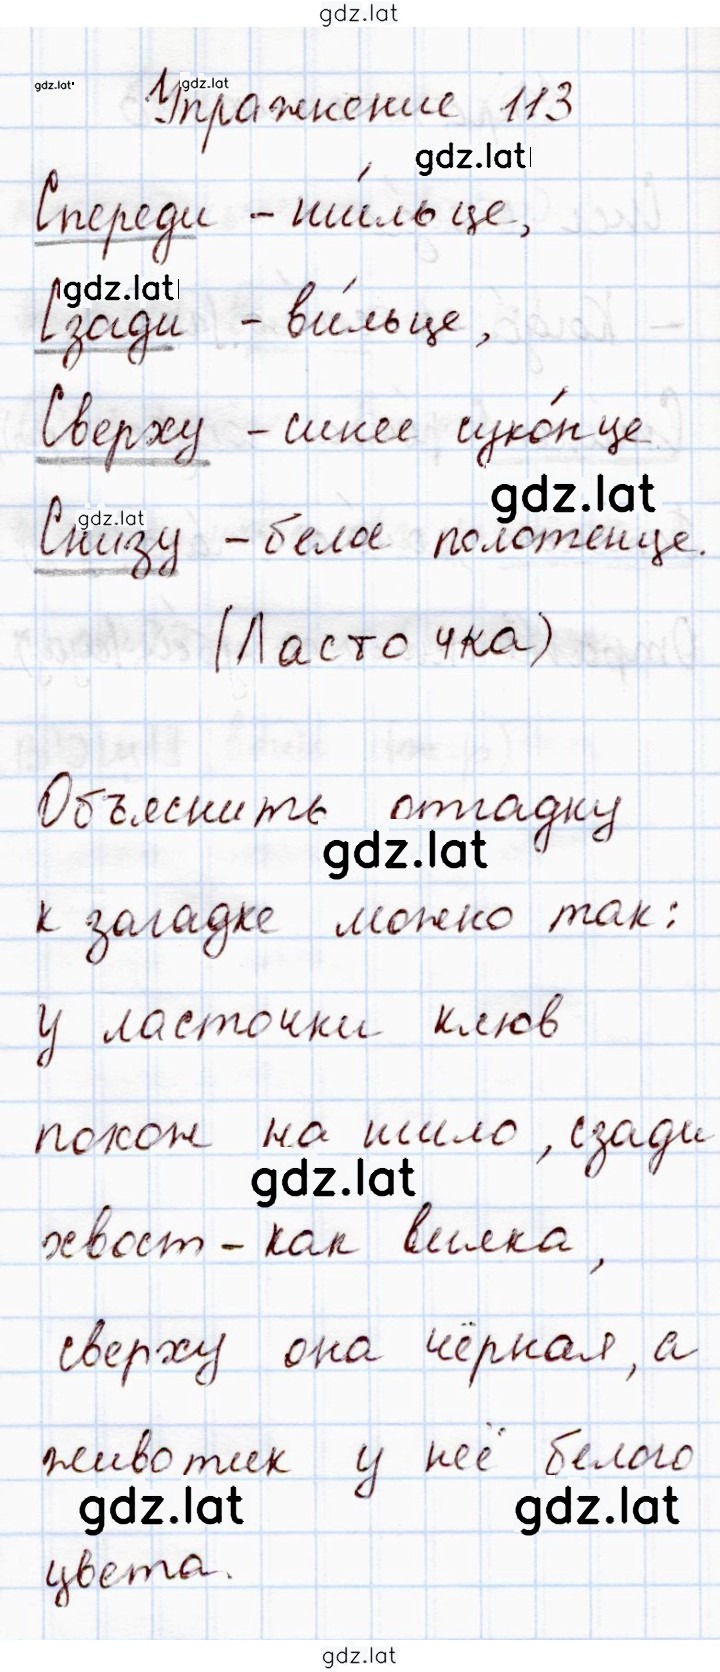 gdz.lat
gdz.lat
gdz.lat
Упражнение 113
gdz.lat
Спереди - ши́льце,
gdz.lat
Сзади - ви́льце,
Сверху - синее суко́нце
gdz.lat
gdz.lat
Снизу - белое полотенце.
(Ласточка)
Объяснить отгадку
gdz.lat
к загадке можно так:
у ласточки клюв
похож на шило, сзади
gdz.lat
хвост - как вилка,
сверху она чёрная, а
животик у неё белого
gdz.lat gdz.lat
цвета.
gdz.lat